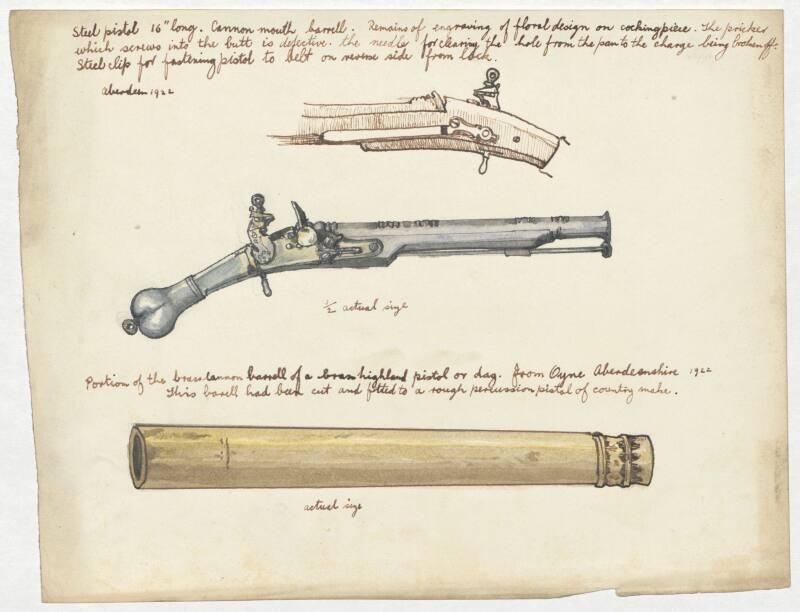 Steel pistol 16" long. Cannon mouth barrell. Remains of engraving of floral design on cocking piece. The pricker
which screws into the butt is defective. the needle for clearing the hole from the pan to the charge being broken off.
Steel clip for fastening pistol to belt on reverse side from lock.
Aberdeen 1922
1/2 actual size
Portion of the brass cannon barrell of a brass highland pistol or dag. from Oyne Aberdeenshire 1922
This barell had been cut and fitted to a rough percussion pistol of country make.
actual size